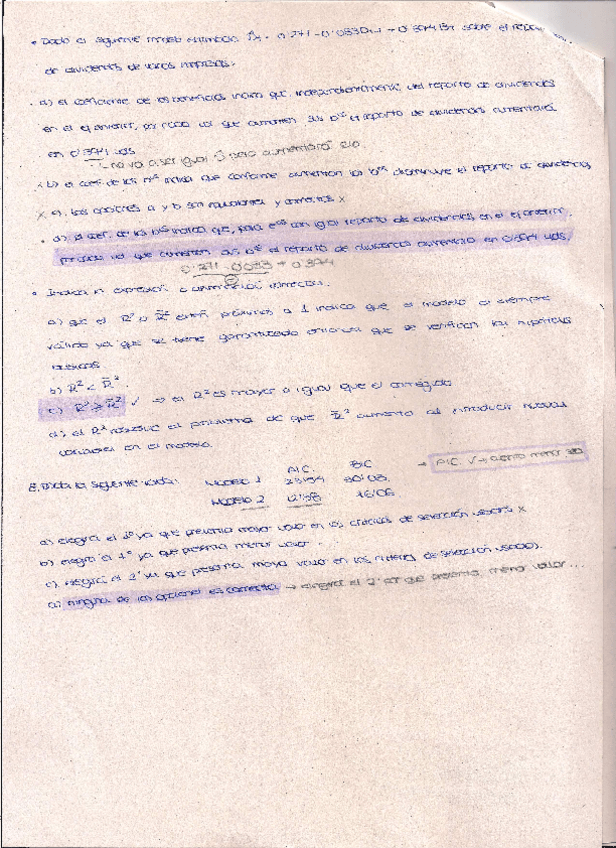 • Dado el siguiente modelo estimado = 0.271 - 0.033D + 0.374Bt sobre el reparto
de dividendos de varias empresas.
a) el coeficiente de los beneficios indica que, independientemente del reparto de dividendos
en el ej anterior, por cada ud que aumenten sus bºs el reparto de dividendos aumentará
en 0'374 uds
no va a ser igual pero aumentará
b) el coef. de los indica que conforme aumentan los bºs disminuye el reparto de dividendos
x c) Las opciones a y b son equivalentes y correctas x
• d) el coef. de los bºs indica que, para eas con igual reparto de dividendos, en el ej anterior,
por cada ud que aumenten sus bº el reparto de dividendos aumentará en 0'374 uds.
0.271 - 0.033 + 0.374
• Indica la expresión o correcta.
a) que el R² o R̄² estén próximos a 1 indica que el modelo es siempre
válido ya que se tiene garantizado que se verifican las hipótesis
básicas
b) R² < R̄².
c) R² ≥ R̄² ✓ → el R² es mayor o igual que el corregido
d) el R² resuelve el problema de que R̄² aumenta al introducir nuevas
variables en el modelo.
AIC. BIC → AIC ✓ → cuanto menor
8. Dada la siguiente tabla: Modelo 1 30'03.
Modelo 2 12'58 16'06
a) elegiría el 2º ya que presenta mayor valor en los criterios de selección usados x
b) elegiría el 1º ya que presenta menor valor...
c) elegiría el 2º ya que presenta mayor valor en los criterios de selección usados.
d) ninguna de las opciones es correcta → elegiría el 2º por que presenta menor valor...